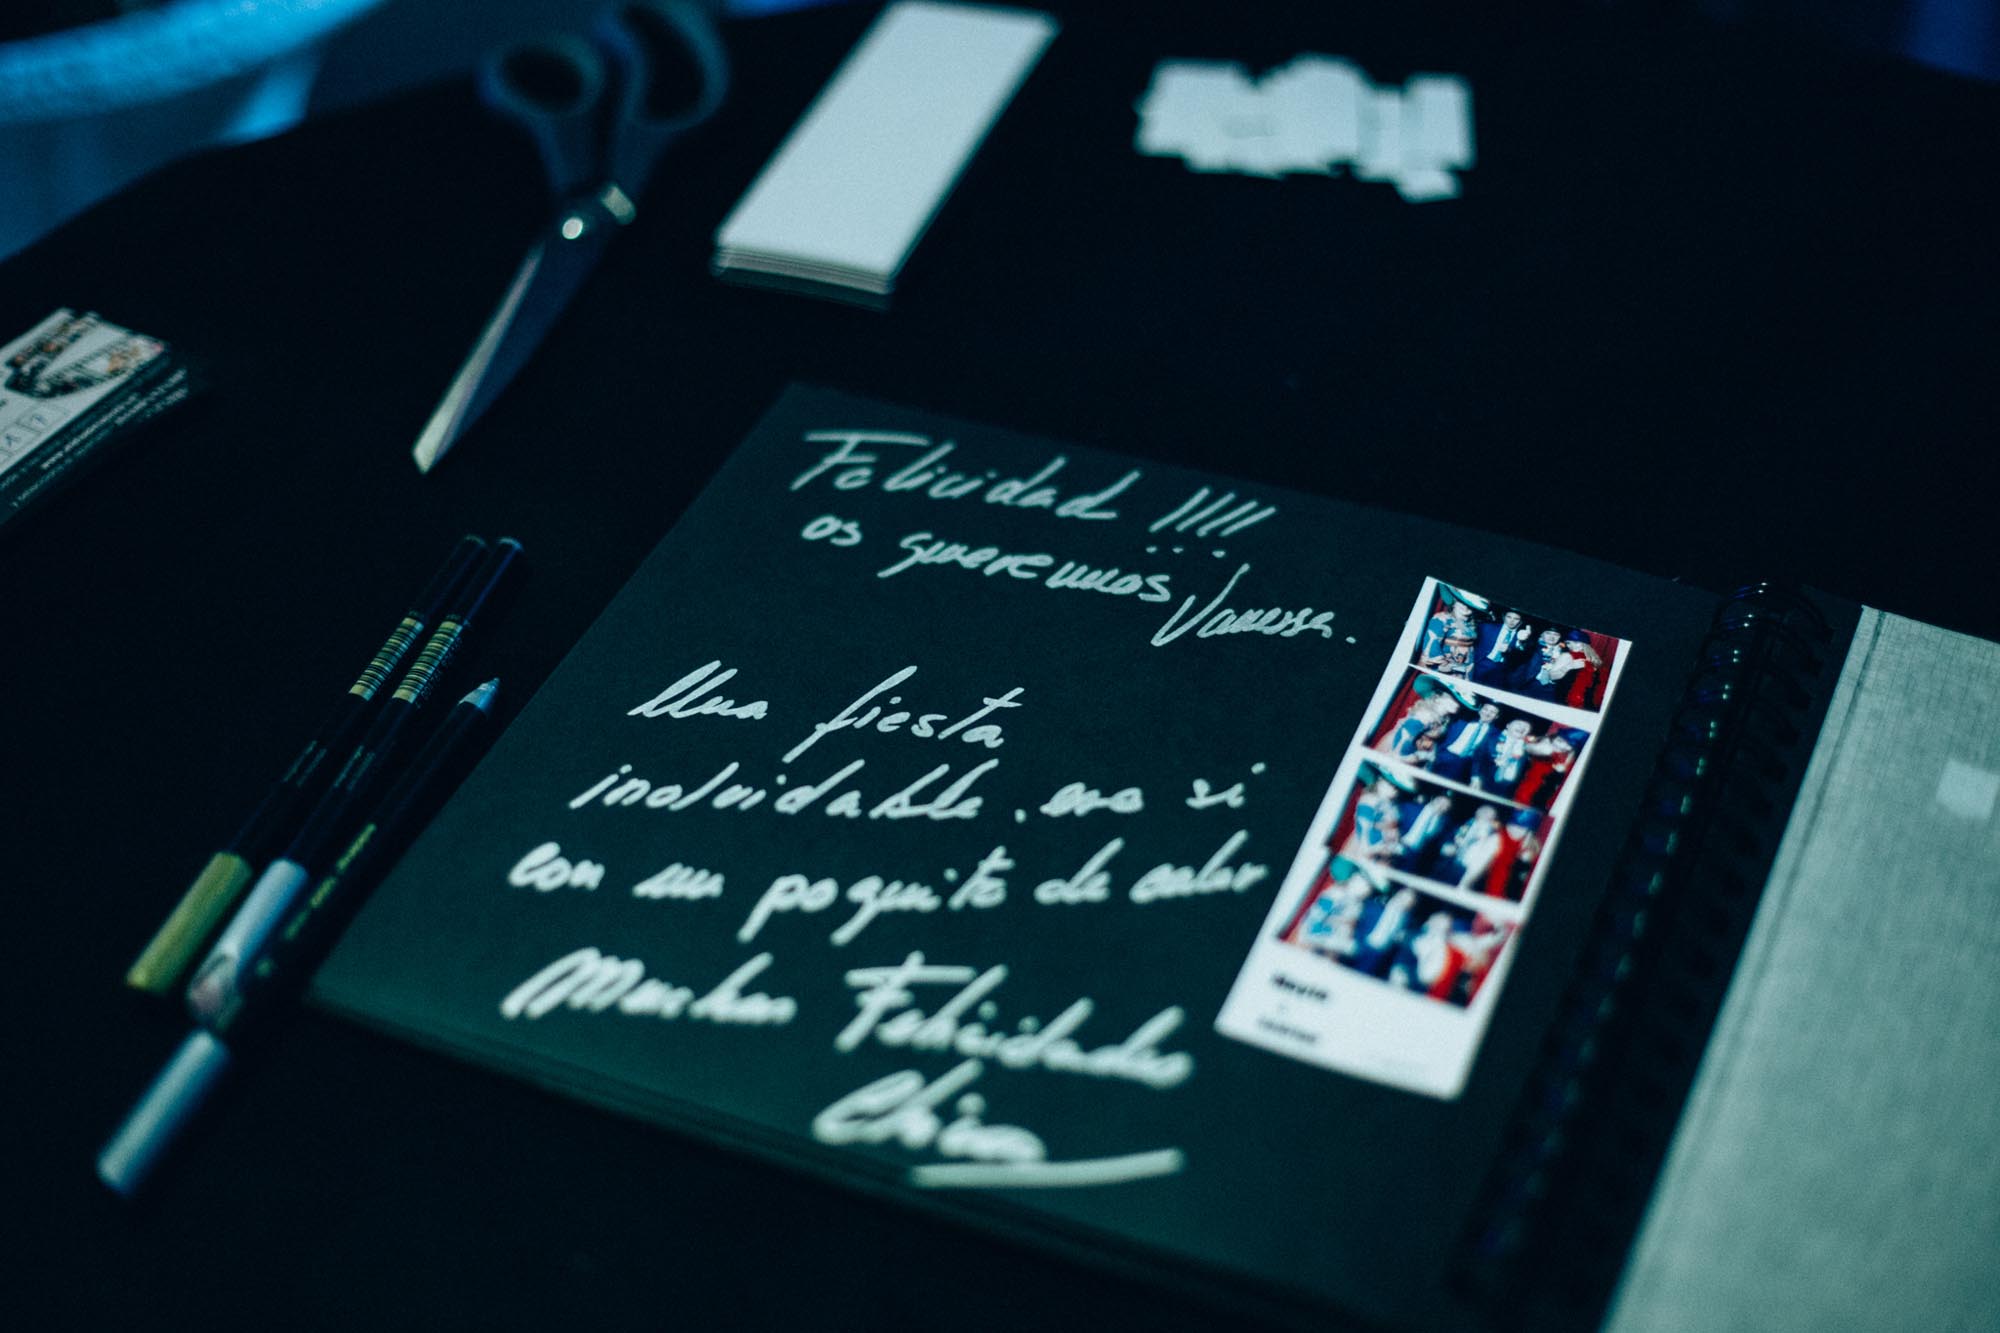 Felicidad !!!!
os queremos Vanessa.
Una fiesta
inolvidable. eso si
con un poquito de calor
Muchas Felicidades